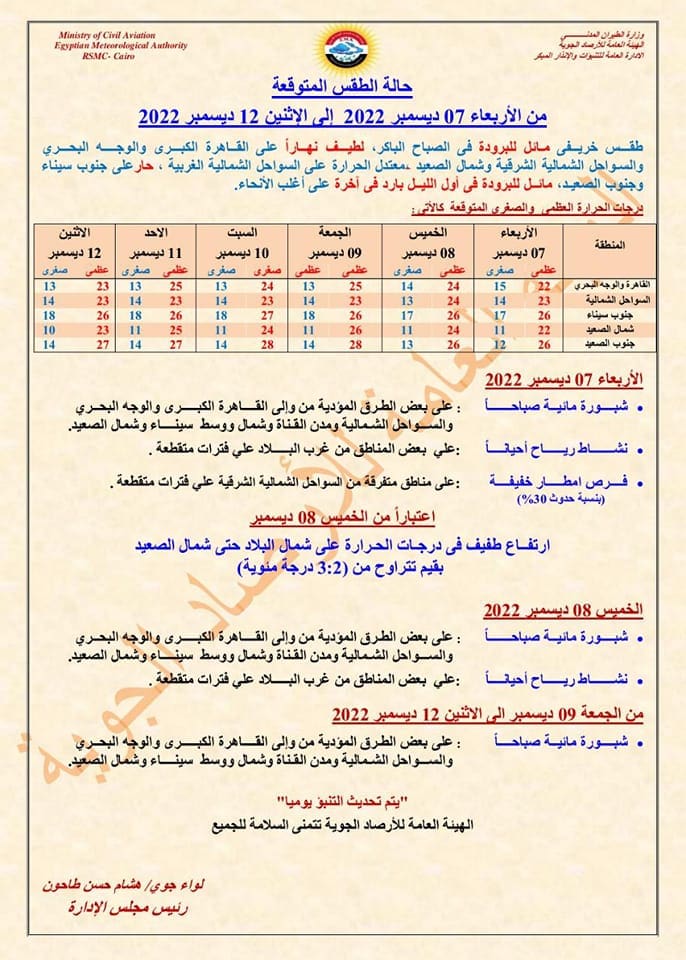 Ministry of Civil Aviation
Egyptian Meteorological Authority
RSMC- Cairo
وزارة الطيران المدنـــي
الهيئة العامة للأرصاد الجوية
الادارة العامة للتنبؤات والإنذار المبكر
حالة الطقس المتوقعة
من الأربعاء 07 ديسمبر 2022 إلى الإثنين 12 ديسمبر 2022
طقـــس خريـــفى مـائل للبرودة فى الصباح الباكر، لطيـف نهـاراً على القاهرة الكبـرى والوجـه البحـري
والسـواحل الشمالية الشرقية وشمال الصعيد ،معتدل الحرارة على السواحل الشمالية الغربية ، حارعلى جنوب سيناء
وجنوب الصعيـد، مـائـل للبرودة فى أول الليـل بـارد فى آخـرة على أغلب الأنحـاء.
درجات الحرارة العظمى والصغرى المتوقعة كالأتى:
المنطقة الأربعاء 07 ديسمبر الخميس 08 ديسمبر الجمعة 09 ديسمبر السبت 10 ديسمبر الاحد 11 ديسمبر الاثنين 12 ديسمبر
عظمى صغرى عظمى صغرى عظمى صغرى عظمى صغرى عظمى صغرى عظمى صغرى
القاهرة والوجه البحري 22 15 24 14 25 13 24 13 25 13 23 13
السواحل الشمالية 23 14 24 14 23 13 23 14 23 14 23 14
جنوب سيناء 26 17 26 17 26 18 27 18 26 18 26 18
شمال الصعيد 22 11 24 11 26 11 24 11 25 11 23 10
جنوب الصعيد 26 12 26 13 28 14 28 14 27 14 27 14
الأربعاء 07 ديسمبر 2022
• شبـورة مـائيـة صباحـاً : على بعض الطرق المؤدية من وإلى القـاهرة الكبـرى والوجه البحـري
والســواحل الشمـالية ومدن القـناة وشمال ووسط سينــاء وشمال الصعيد.
• نشـاط ريـاح أحيانـاً :علي بعض المناطق من غرب البـلاد علي فترات متقطعة .
• فـرص امطـار خفيفـة :على مناطق متفرقة من السواحل الشمالية الشرقية علي فترات متقطعة .
(بنسبة حدوث 30%)
اعتبـاراً من الخميس 08 ديسمبر
ارتفـاع طفيف فى درجـات الحـرارة على شمال البلاد حتى شمال الصعيد
بقيم تتراوح من (3:2 درجة مئوية)
الخميس 08 ديسمبر 2022
• شبـورة مـائيـة صباحـاً : على بعض الطرق المؤدية من وإلى القـاهرة الكبـرى والوجه البحـري
والســواحل الشمـالية ومدن القـناة وشمال ووسط سينــاء وشمال الصعيد.
• نشـاط ريـاح أحيانـاً :علي بعض المناطق من غرب البـلاد علي فترات متقطعة .
من الجمعة 09 ديسمبر الى الاثنين 12 ديسمبر 2022
• شبـورة مـائيـة صباحـاً : على بعض الطرق المؤدية من وإلى القـاهرة الكبـرى والوجه البحـري
والســواحل الشمـالية ومدن القـناة وشمال ووسط سينــاء وشمال الصعيد.
"يتم تحديث التنبؤ يوميا"
الهيئة العامة للأرصاد الجوية تتمنى السلامة للجميع
لواء جوي/ هشام حسن طاحون
رئيس مجلس الإدارة